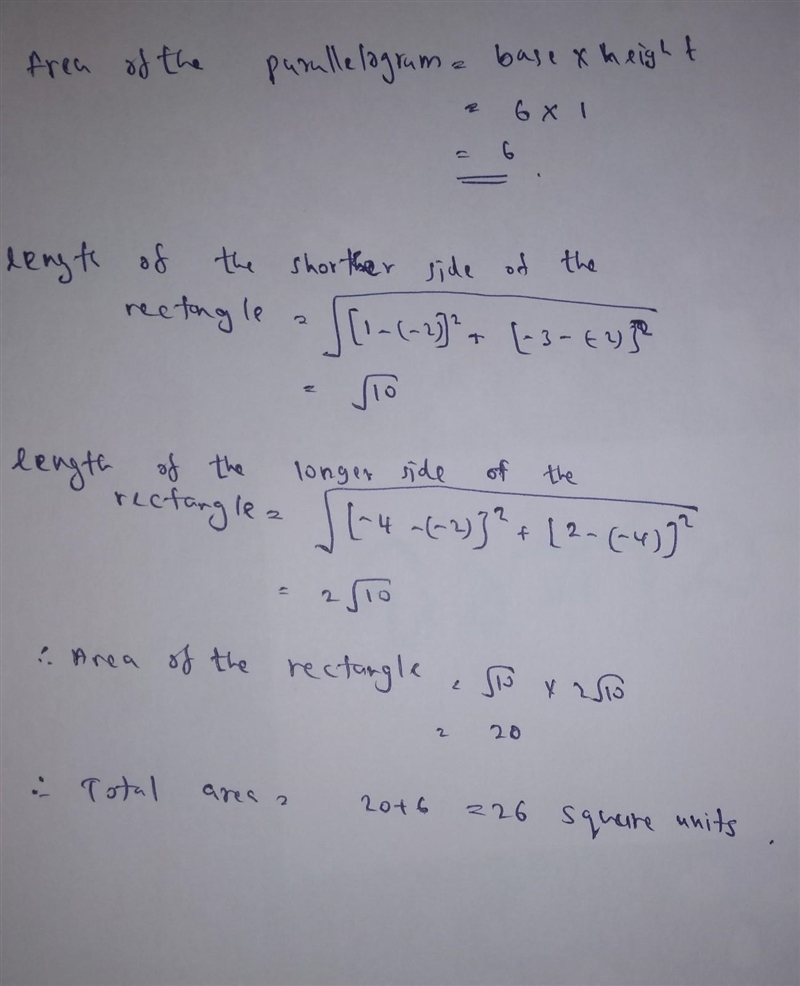 Area of the parallelogram = base × height
= 6 × 1
= 6 .
Length of the shorther side of the
rectangle = √[1-(-2)]² + [-3-(-2)]²
= √10
Length of the longer side of the
rectangle = √[-4-(-2)]² + [2-(-4)]²
= 2√10
∴ Area of the rectangle = √10 × 2√10
= 20
∴ Total area = 20+6 = 26 square units .